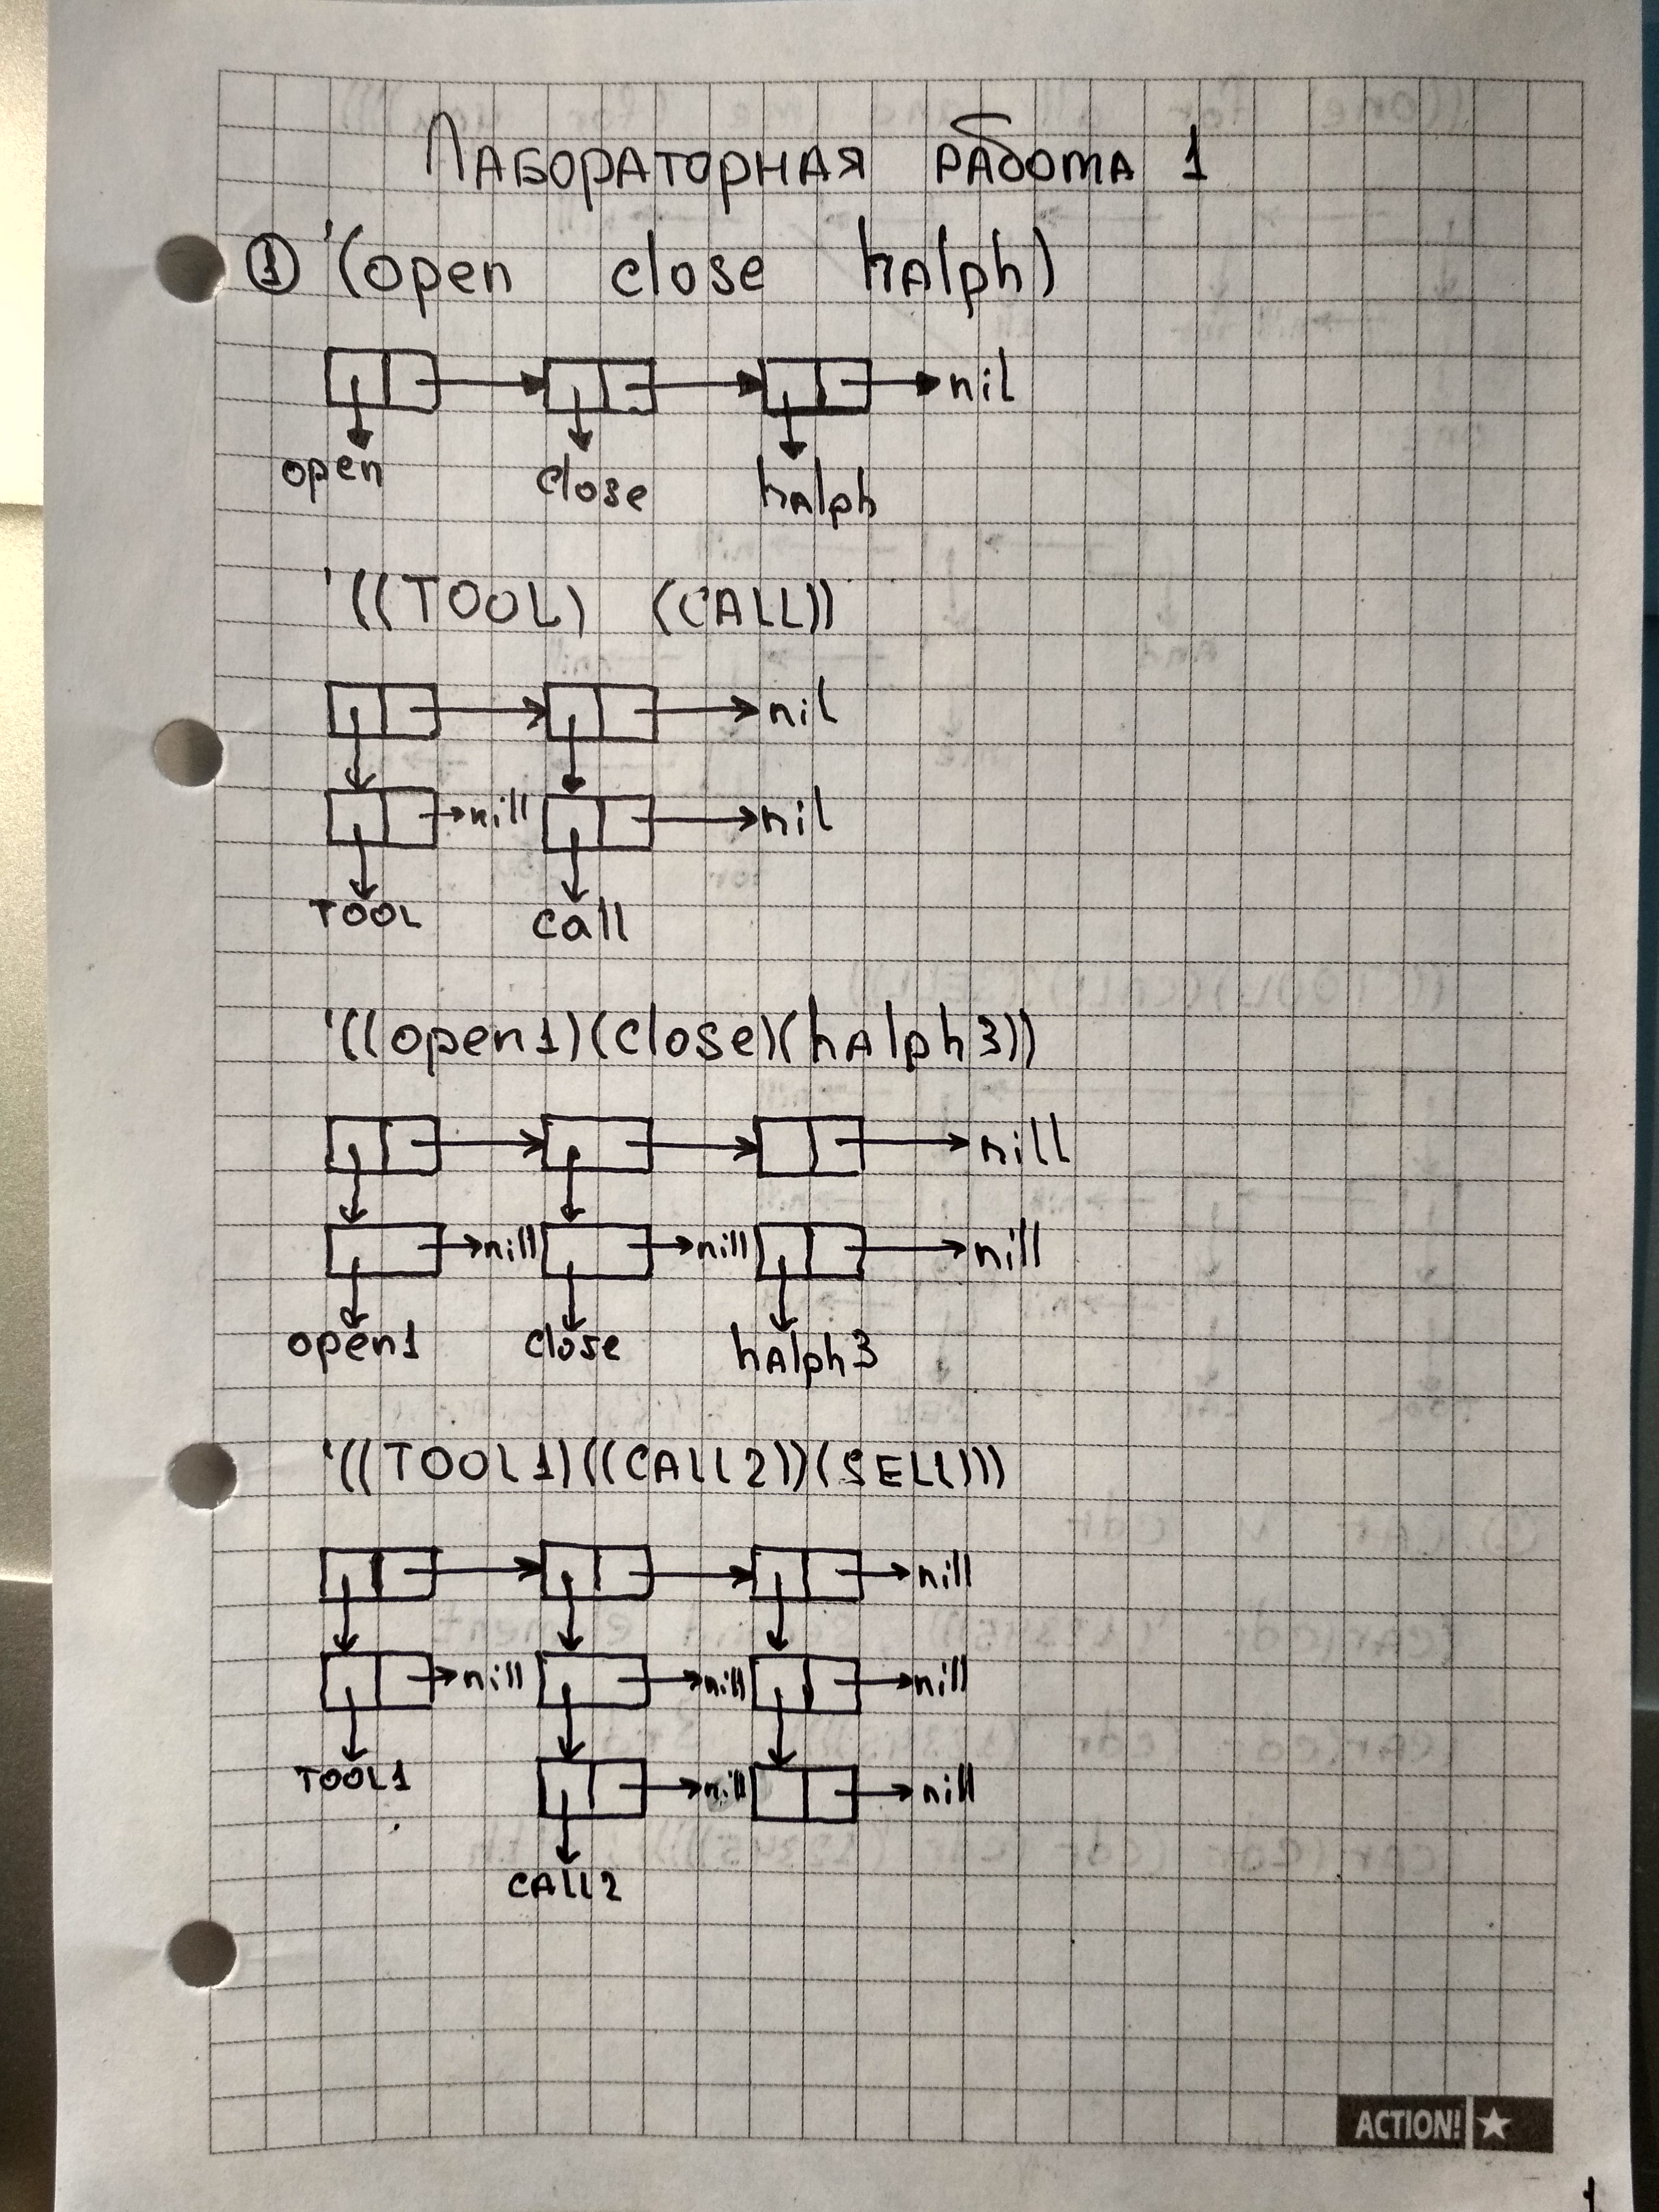 Лабораторная работа 1
① '(open close halph)
nil
open close halph
'((TOOL) (CALL))
nil
nill nil
TOOL call
'((open1)(close)(halph3))
nill
nill nill nill
open1 close halph3
'((TOOL1)((CALL2))(SELL)))
nill
nill nill nill
TOOL1 nill nill
CALL2
ACTION!
1